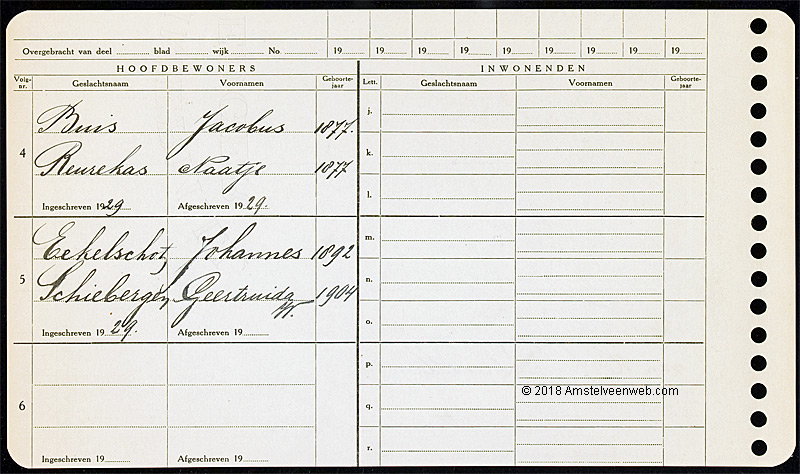 Overgebracht van deel ........ blad ........ wijk ........ No ........ 19 ........ 19 ........ 19 ........ 19 ........ 19 ........ 19 ........ 19 ........ 19 ........ 19 ........
HOOFDBEWONERS INWONENDEN
Volg-nr. Geslachtsnaam Voornamen Geboorte-jaar Lett. Geslachtsnaam Voornamen Geboorte-jaar
j.
Buis Jacobus 1877.
4 k.
Reurekas Naatje 1877
l.
Ingeschreven 1929 Afgeschreven 1929.
m.
Eekelschot Johannes 1892
5 n.
Schiebergen Geertruida W. 1904
o.
Ingeschreven 1929. Afgeschreven 19........
p.
© 2018 Amstelveenweb.com
6 q.
r.
Ingeschreven 19........ Afgeschreven 19........